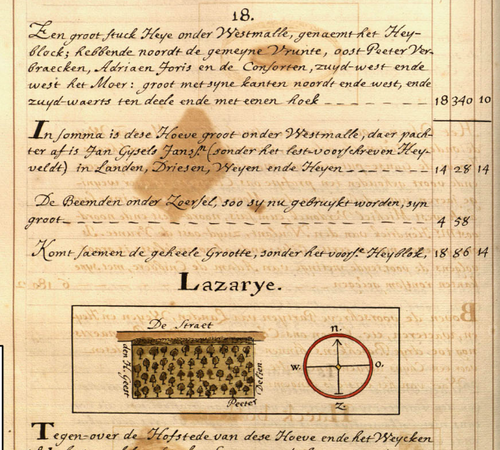 18.
Een groot stuck Heye onder Westmalle, genaemt het Hey-
block; hebbende noordt de gemeyne Vrunte, oost Peeter Ver-
braecken, Adriaen Joris en de Consorten, zuyd-west ende
west het Moer: groot met syne kanten noordt ende west, ende
zuyd-waerts ten deele ende met eenen hoek 18 340 10
In somma is dese Hoeve groot onder Westmalle, daer pach-
ter af is Jan Gysels Janss.n (sonder het lest-voorschreven Hey-
veldt) in Landen, Driesen, Weyen ende Heyen 14 28 14
De Beemden onder Zoersel, soo sy nu gebruykt worden, syn
groot 4 58
Komt saemen de geheele Grootte, sonder het voors.e Heyblok, 18 86 14
Lazarye.
De Straet
n.
w. o.
z.
den Heer
Peeter
Tegen-over de Hofstede van dese Hoeve ende het Weycken